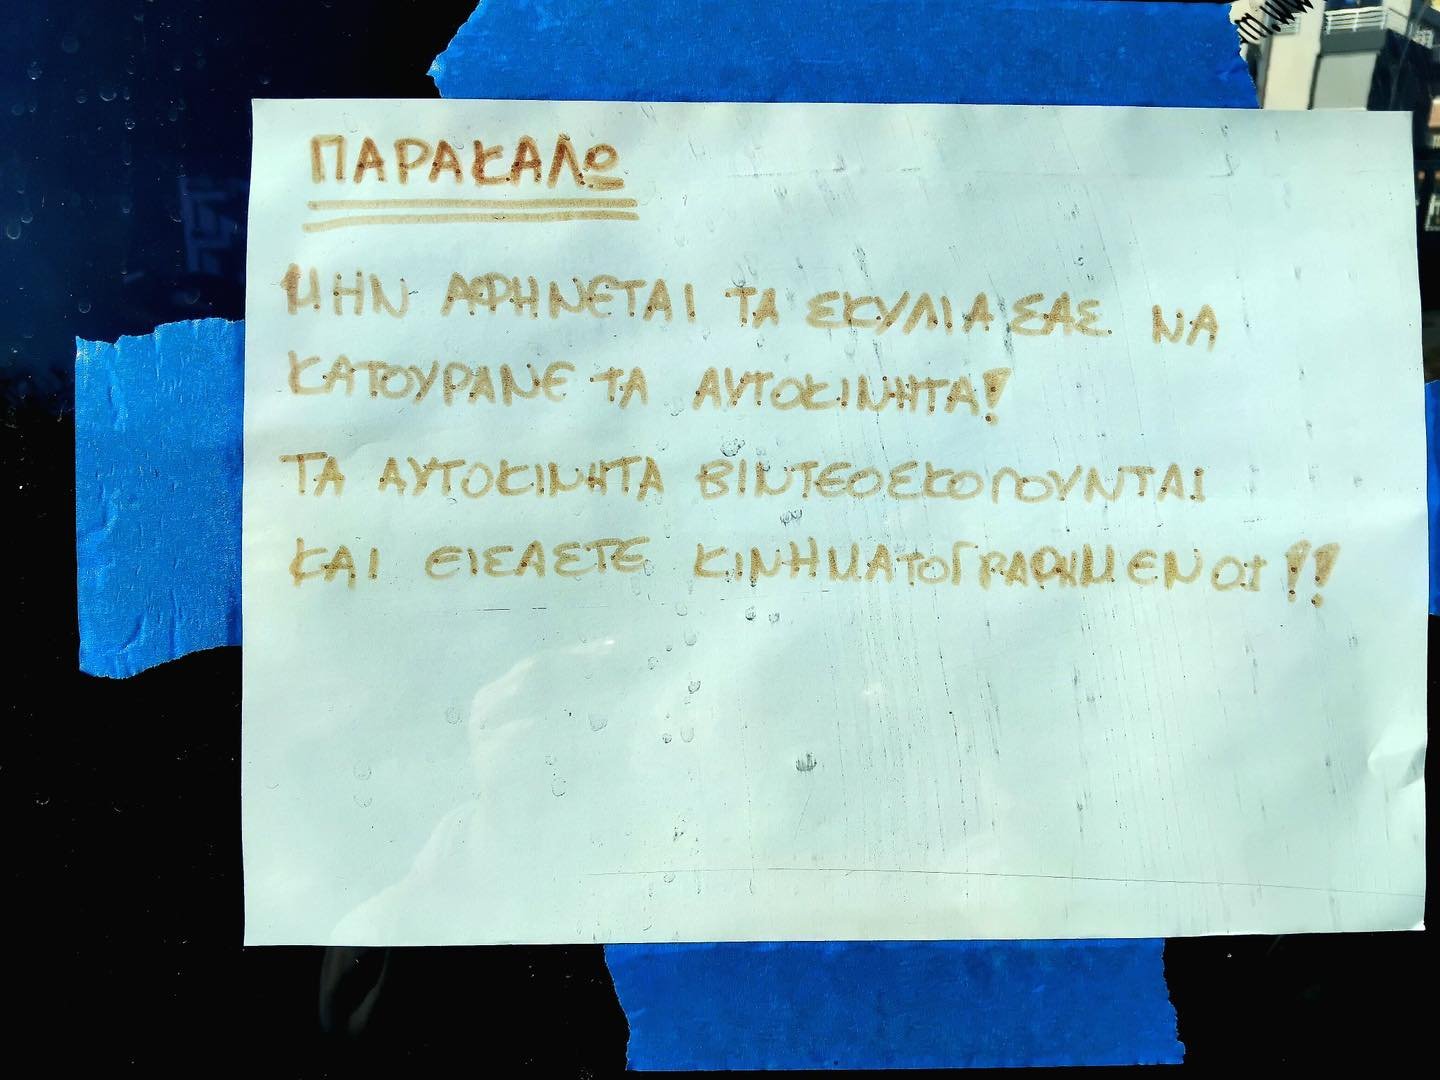 ΠΑΡΑΚΑΛΩ
ΜΗΝ ΑΦΗΝΕΤΑΙ ΤΑ ΣΚΥΛΙΑ ΣΑΣ ΝΑ
ΚΑΤΟΥΡΑΝΕ ΤΑ ΑΥΤΟΚΙΝΗΤΑ!
ΤΑ ΑΥΤΟΚΙΝΗΤΑ ΒΙΝΤΕΟΣΚΟΠΟΥΝΤΑΙ
ΚΑΙ ΕΙΣΑΣΤΕ ΚΙΝΗΜΑΤΟΓΡΑΦΗΜΕΝΟΙ!!